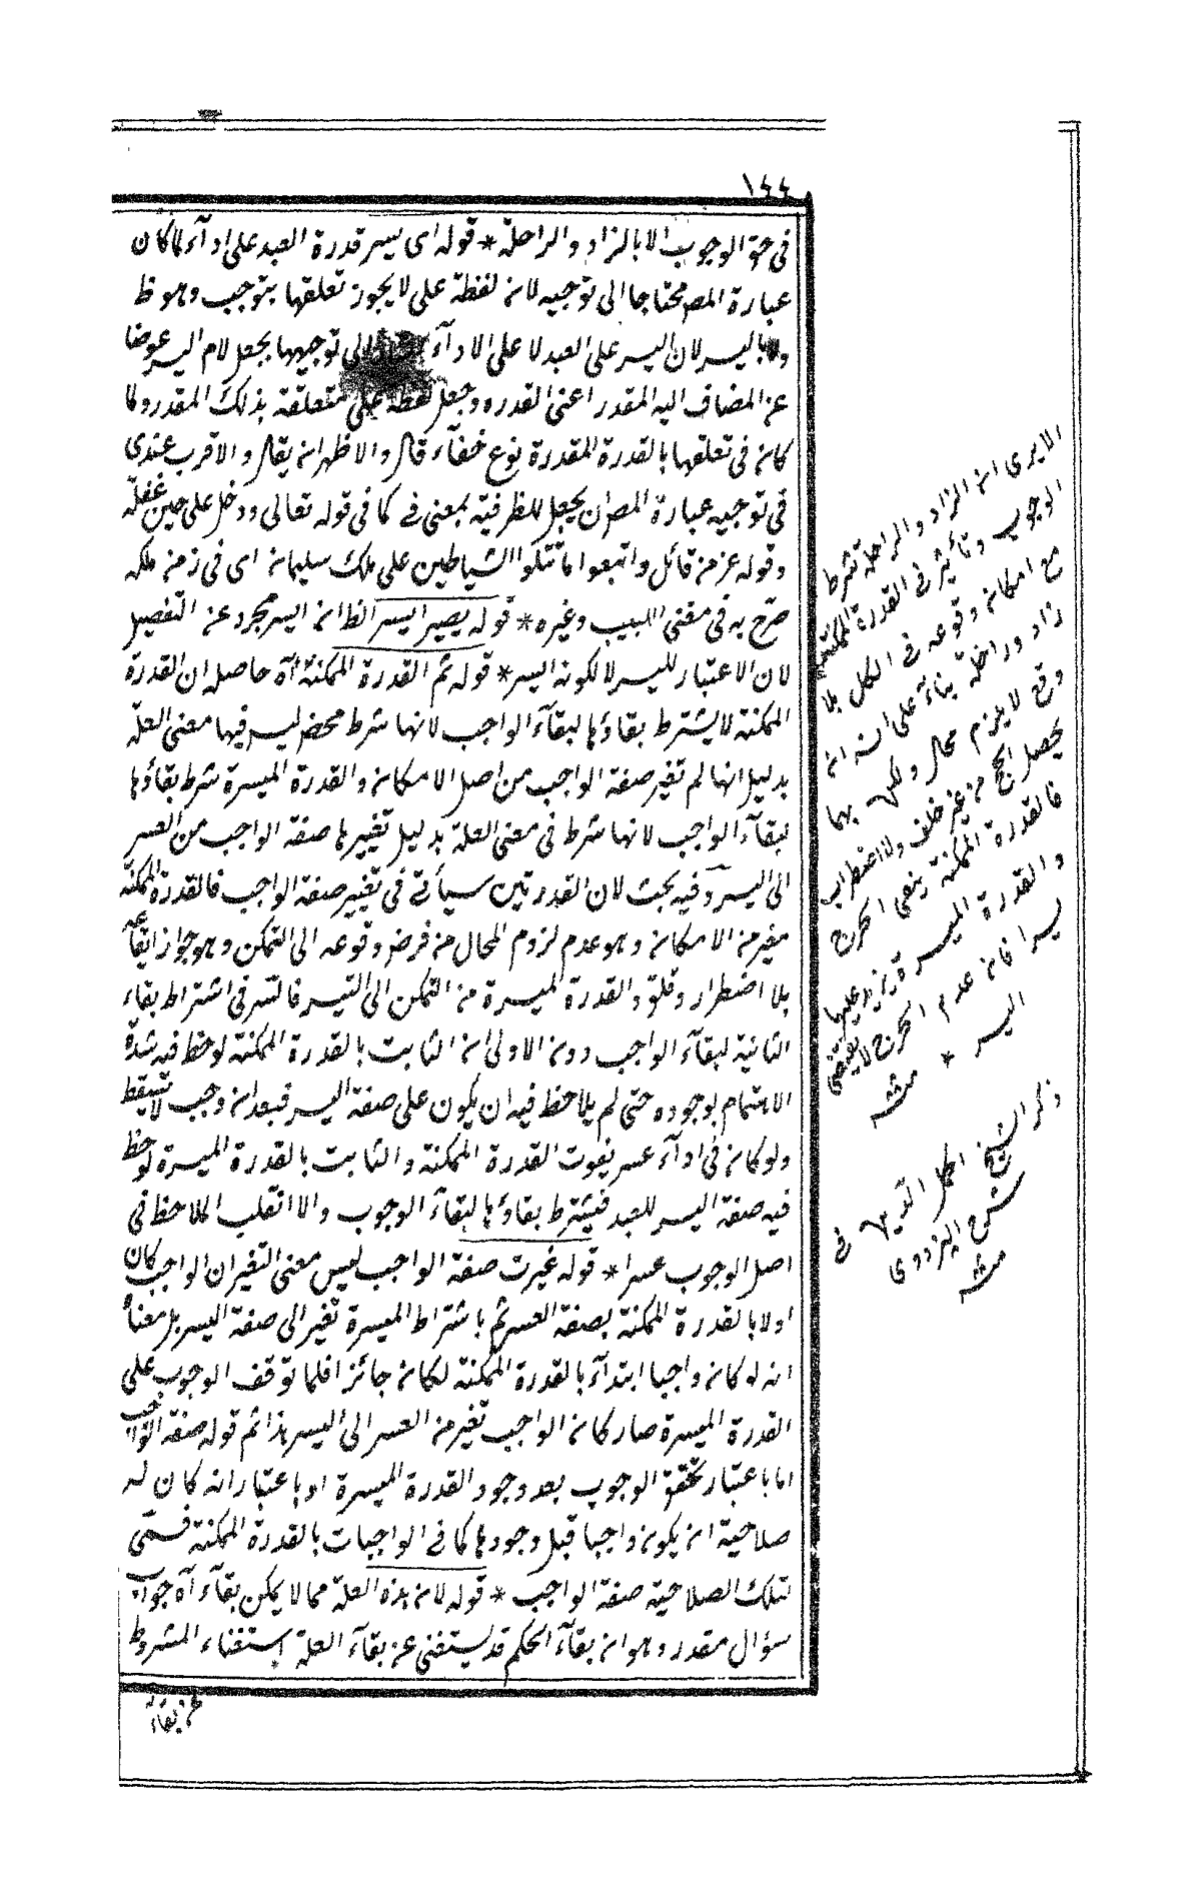 ١٤٤
فى حق الوجوب الا بالزاد والراحلة * قوله اى يسر قدرة العبد على ادآء لما كان
عبارة المصـ محتاجا الى توجيه لان لفظة على لا يجوز تعلقها بتوجب وهو ظ
ولا باليسر لان اليسر على العبد لا على الادآء الى توجيهها بجعل لام اليسر عوضا
عن المضاف اليه المقدر اعنى القدرة وجعل لفظة على متعلقة بذلك المقدر ولما
كان فى تعلقها بالقدرة المقدرة نوع خفآء قال والاظهر ان يقال والاقرب عندى
فى توجيه عبارة المصـ ان يجعل للظرفية بمعنى فى كما فى قوله تعالى ودخل على حين غفلة
وقوله عز من قائل واتبعوا ما تتلوا الشياطين على ملك سليمان اى فى زمن ملكه
صرح به فى مغنى اللبيب وغيره * قوله يصير ايسر الظ ان ايسر مجرد عن التفضيل
لان الاعتبار لليسر لا لكونه ايسر * قوله ثم القدرة الممكنة آه حاصله ان القدرة
الممكنة لا يشترط بقاؤها لبقآء الواجب لانها شرط محض ليس فيها معنى العلة
بدليل انها لم تغير صفة الواجب من اصل الامكان والقدرة الميسرة شرط بقاؤها
لبقآء الواجب لانها شرط فى معنى العلة بدليل تغييرها صفة الواجب من العسر
الى اليسر وفيه بحث لان القدرتين سيأتى فى تغيير صفة الواجب فالقدرة الممكنة
مغير من الامكان وهو عدم لزوم المحال من فرض وقوعه الى التمكن وهو جواز ايقاعه
بلا اضطرار وقلق والقدرة الميسرة من التمكن الى التيسر فالسر فى اشتراط بقاء
الثانية لبقآء الواجب دون الاولى ان الثابت بالقدرة الممكنة لوحظ فيه شدة
الاهتمام بوجوده حتى لم يلاحظ فيه ان يكون على صفة اليسر فبعد ان وجب لا يسقط
ولو كان فى ادآء عسر بفوت القدرة الممكنة والثابت بالقدرة الميسرة لوحظ
فيه صفة اليسر للعبد فيشترط بقاؤها لبقآء الوجوب والا انقلب الملاحظ فى
اصل الوجوب عسرا * قوله غيرت صفة الواجب ليس معنى التغير ان الواجب كان
اولا بالقدرة الممكنة بصفة العسر ثم باشتراط الميسرة تغير الى صفة اليسر بل معناه
انه لو كان واجبا ابتدآء بالقدرة الممكنة لكان جائزا فلما توقف الوجوب على
القدرة الميسرة صار كان الواجب تغير من العسر الى اليسر هذا ثم قوله صفة الواجب
اما باعتبار تحقق الوجوب بعد وجود القدرة الميسرة او باعتبار انه كان له
صلاحية ان يكون واجبا قبل وجودها كما فى الواجبات بالقدرة الممكنة فسمى
تلك الصلاحية صفة الواجب * قوله لان هذه العلة مما لا يمكن بقآء آه جواب
سؤال مقدر وهو ان بقآء الحكم قد يستغنى عن بقآء العلة استغناء المشروط
عن بقاء
الا يرى ان الزاد والراحلة شرط
الوجوب وتأثير فى القدرة الممكنة
مع امكان وقوعه فى الكل بلا
زاد وراحلة بناء على انه ان
وقع لا يلزم محال ولكن بهما
يحصل الحج من غير خلف ولا اضطراب
فالقدرة الممكنة ينفى الحرج
والقدرة الميسرة تزيد عليها
يسرا فان عدم الحرج لا يقتضى
اليسر * منه
ذكر الشيخ اكمل الدين فى
شرح البزدوى
منه